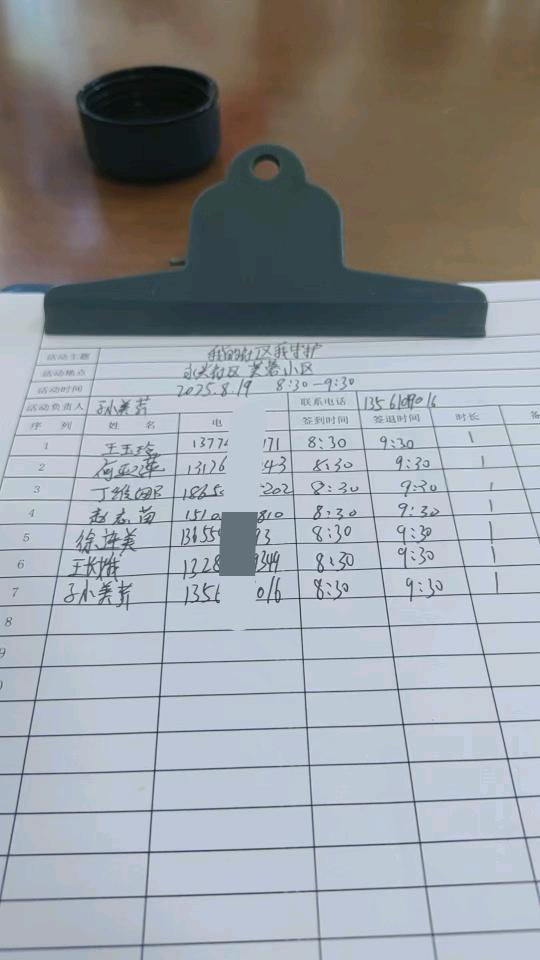 活动主题 我的社区我守护
活动地点 永兴社区 芙蓉小区
活动时间 2025.8.19 8:30-9:30
活动负责人 联系电话
序列 姓名 电 签到时间 签退时间 时长 备
1 王玉玲 1377 171 8:30 9:30 1
2 13126 43 8:30 9:30 1
3 1865 202 8:30 9:30 1
4 赵志苗 1510 810 8:30 9:30 1
5 徐连美 13655 93 8:30 9:30 1
6 1328 344 8:30 9:30 1
7 1356 016 8:30 9:30 1
8
9